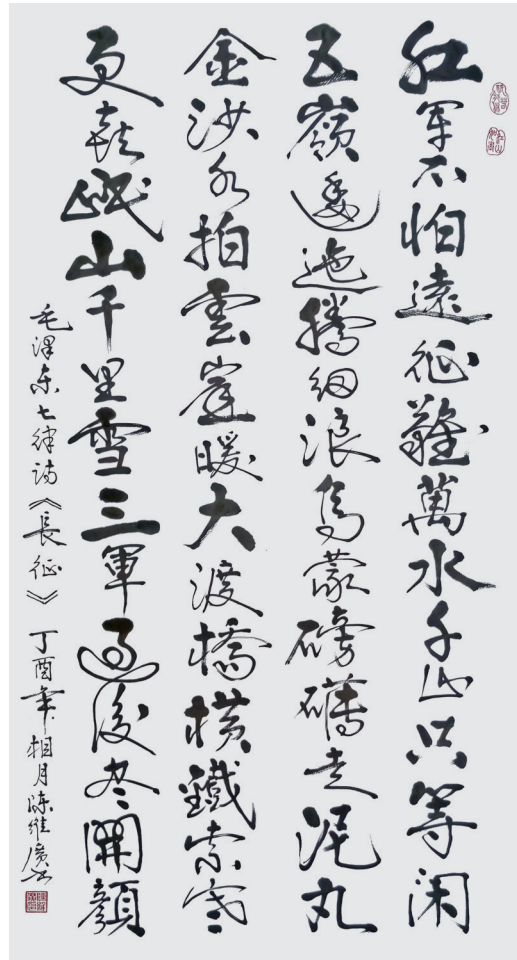 红军不怕遠征難萬水千山只等闲
五嶺逶迤腾细浪烏蒙磅礴走泥丸
金沙水拍雲崖暖大渡橋横鐵索寒
更喜岷山千里雪三軍过後尽開顔
毛泽东七律诗《長征》 丁酉年相月陈维廣书